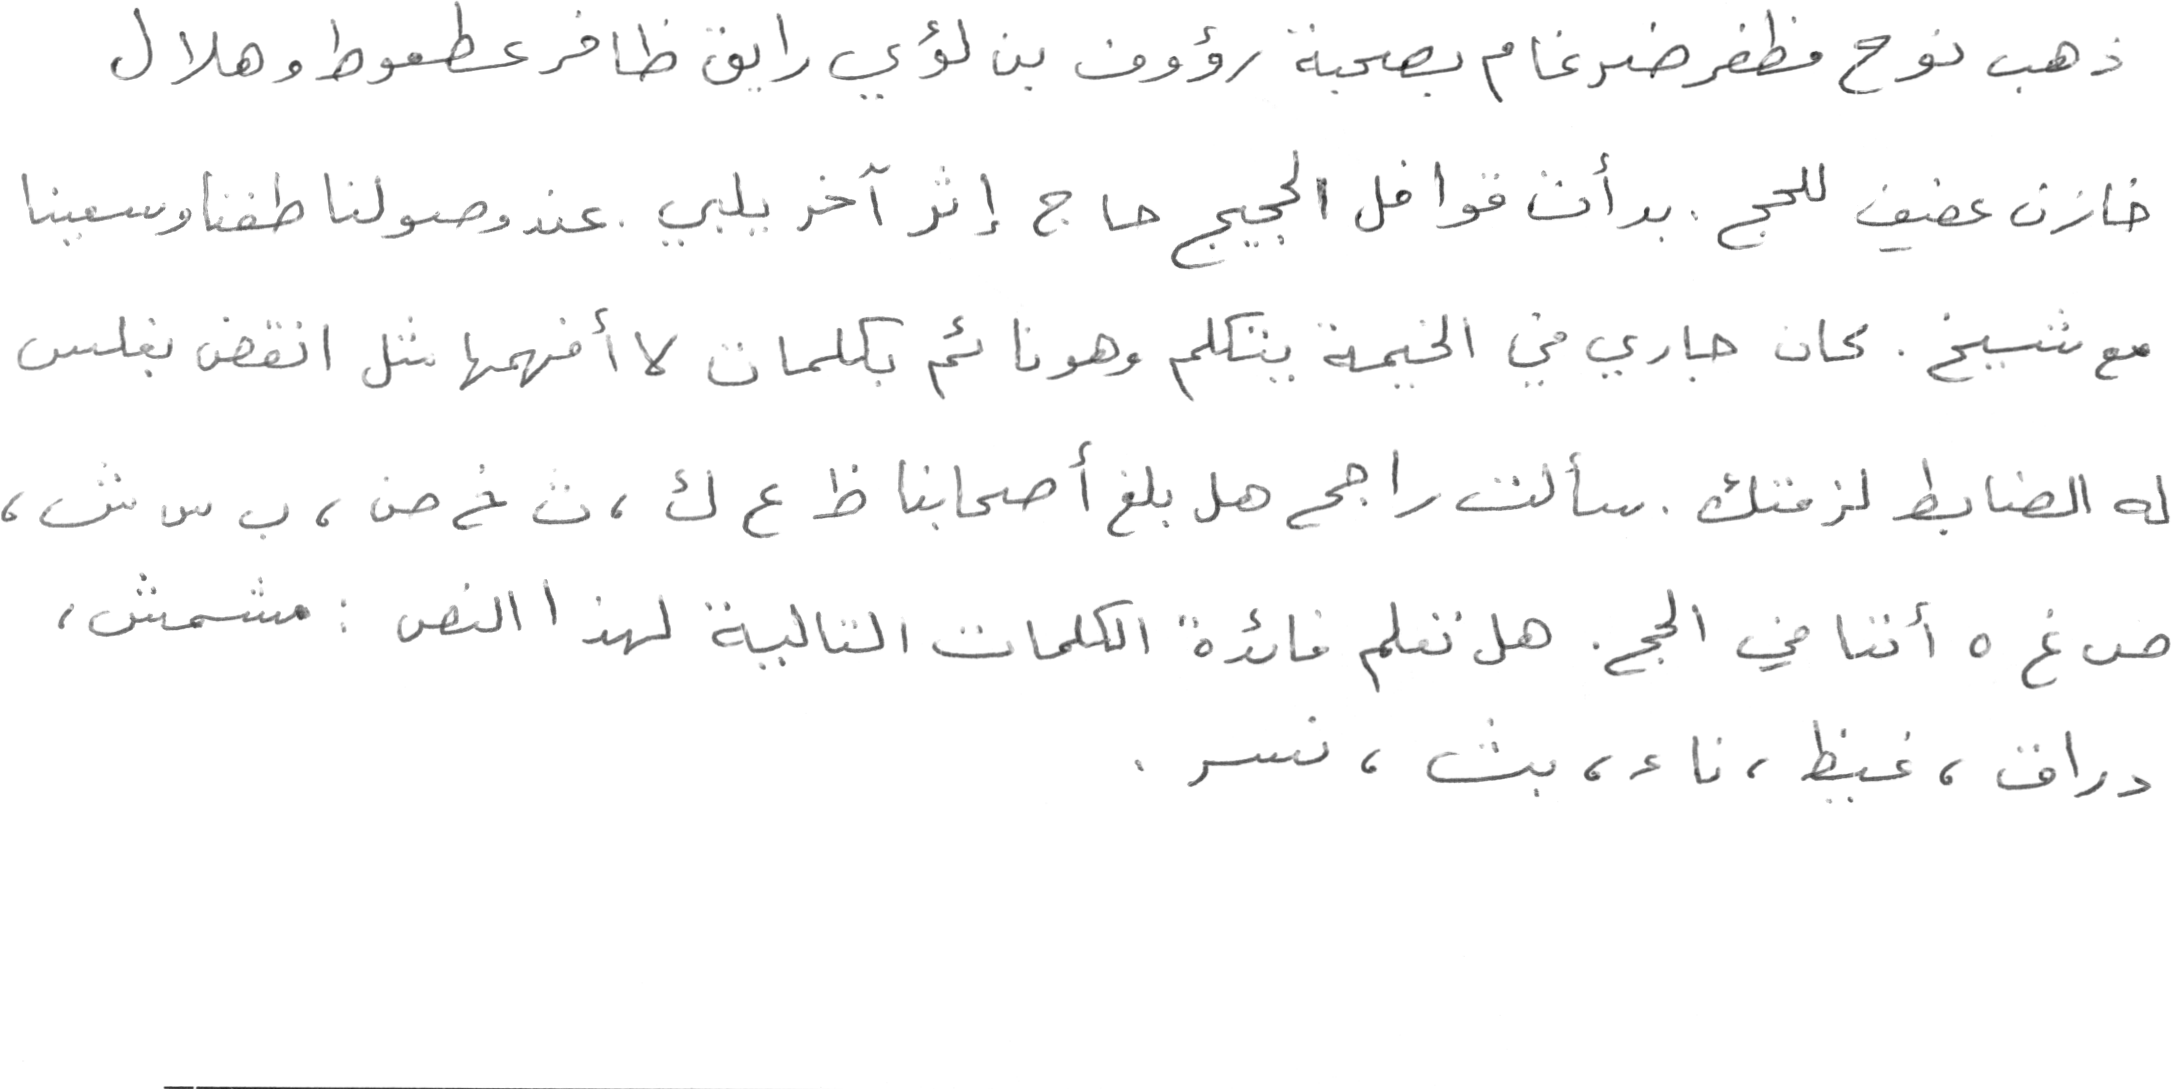 ذهب نوح مظفر ضرغام بصحبة رؤوف بن لؤي رايق ظافر عطعوط وهلال
خازن عفيف للحج . بدأت قوافل الحجيج حاج إثر آخر يلبي . عند وصولنا طفنا وسعينا
مع شيخ . كان جاري في الخيمة يتكلم وهو نائم بكلمات لا أفهمها مثل انقض بغلس
له الضابط لزفتك . سألت راجح هل بلغ أصحابنا ظ ع ك ، ث خ ص ، ب س ش ،
ض غ ه أننا في الحج . هل تعلم فائدة الكلمات التالية لهذا النص : مشمش ،
دراق ، غيظ ، ناء ، بث ، نسر .